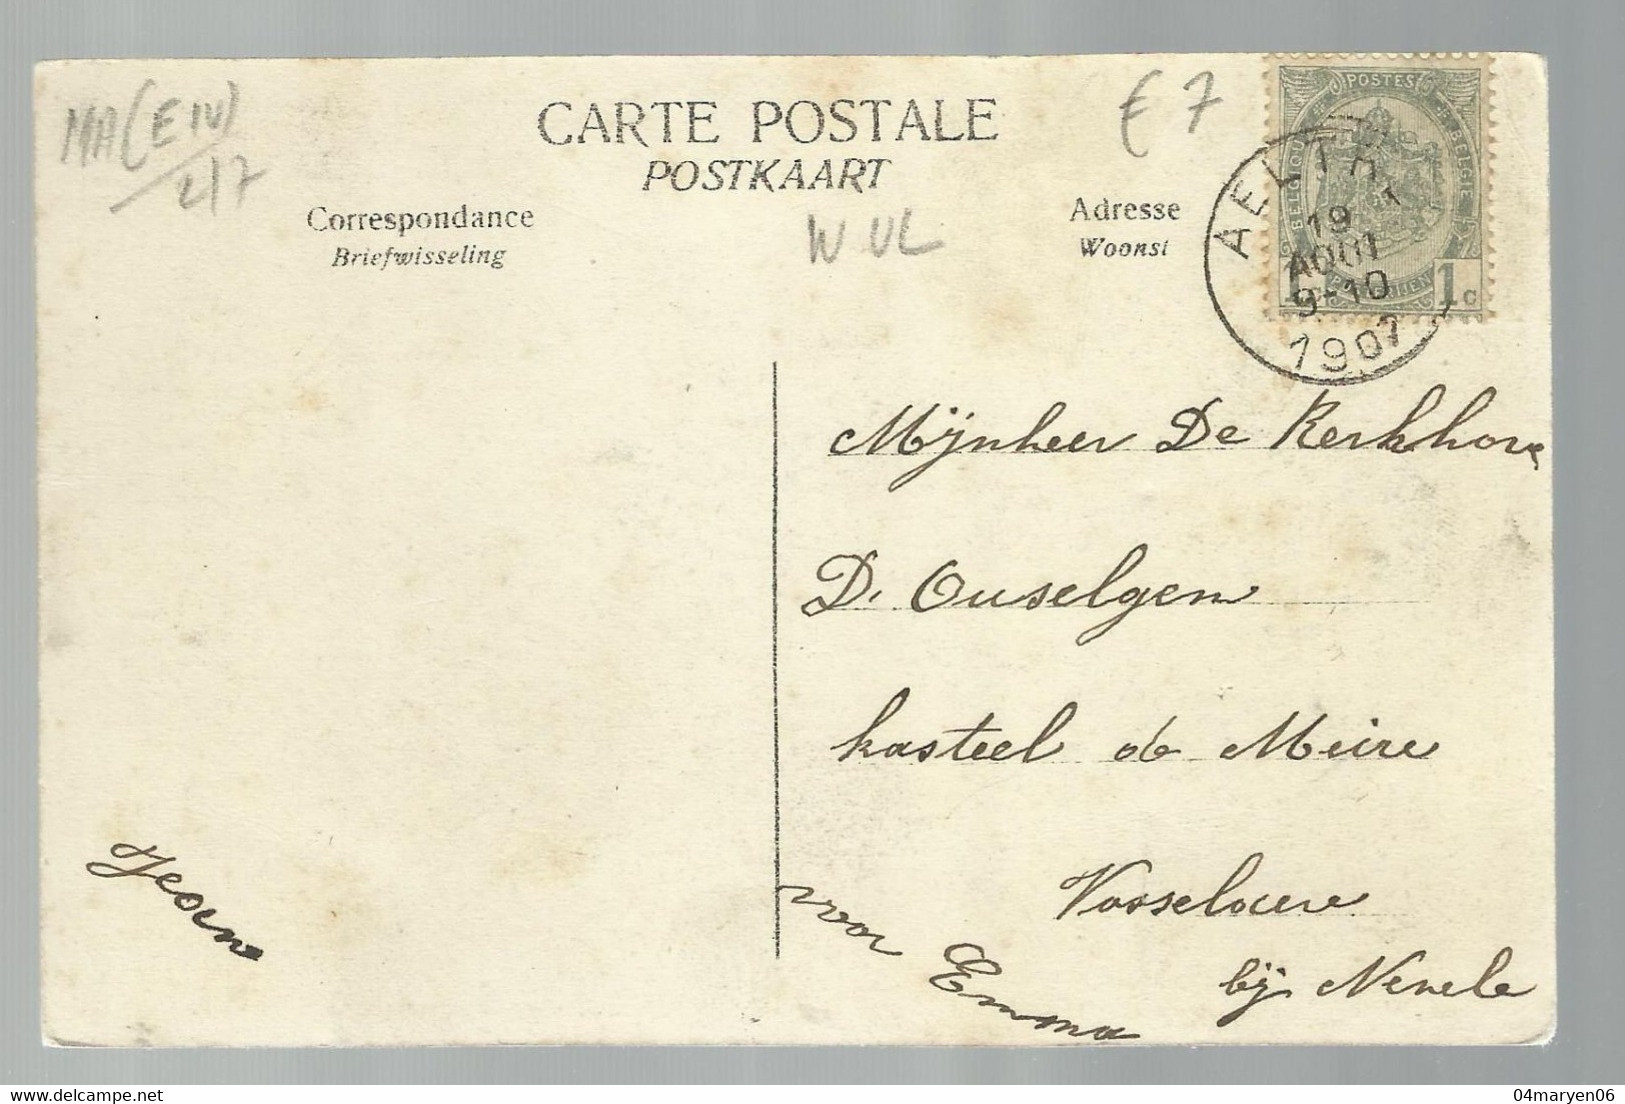 MA(E IV)
2/7
CARTE POSTALE
POSTKAART
€ 7
Correspondance
Briefwisseling
W VL
Adresse
Woonst
POSTES
BELGIQUE
BELGIE
POSTERIJEN
1c 1c
AELTR
19
AOUT
9-10
1907
Mijnheer De Kerkhove
D. Ouselgem
kasteel de Meire
Vosselaere
bij Nevele
voor Emma
04maryen06